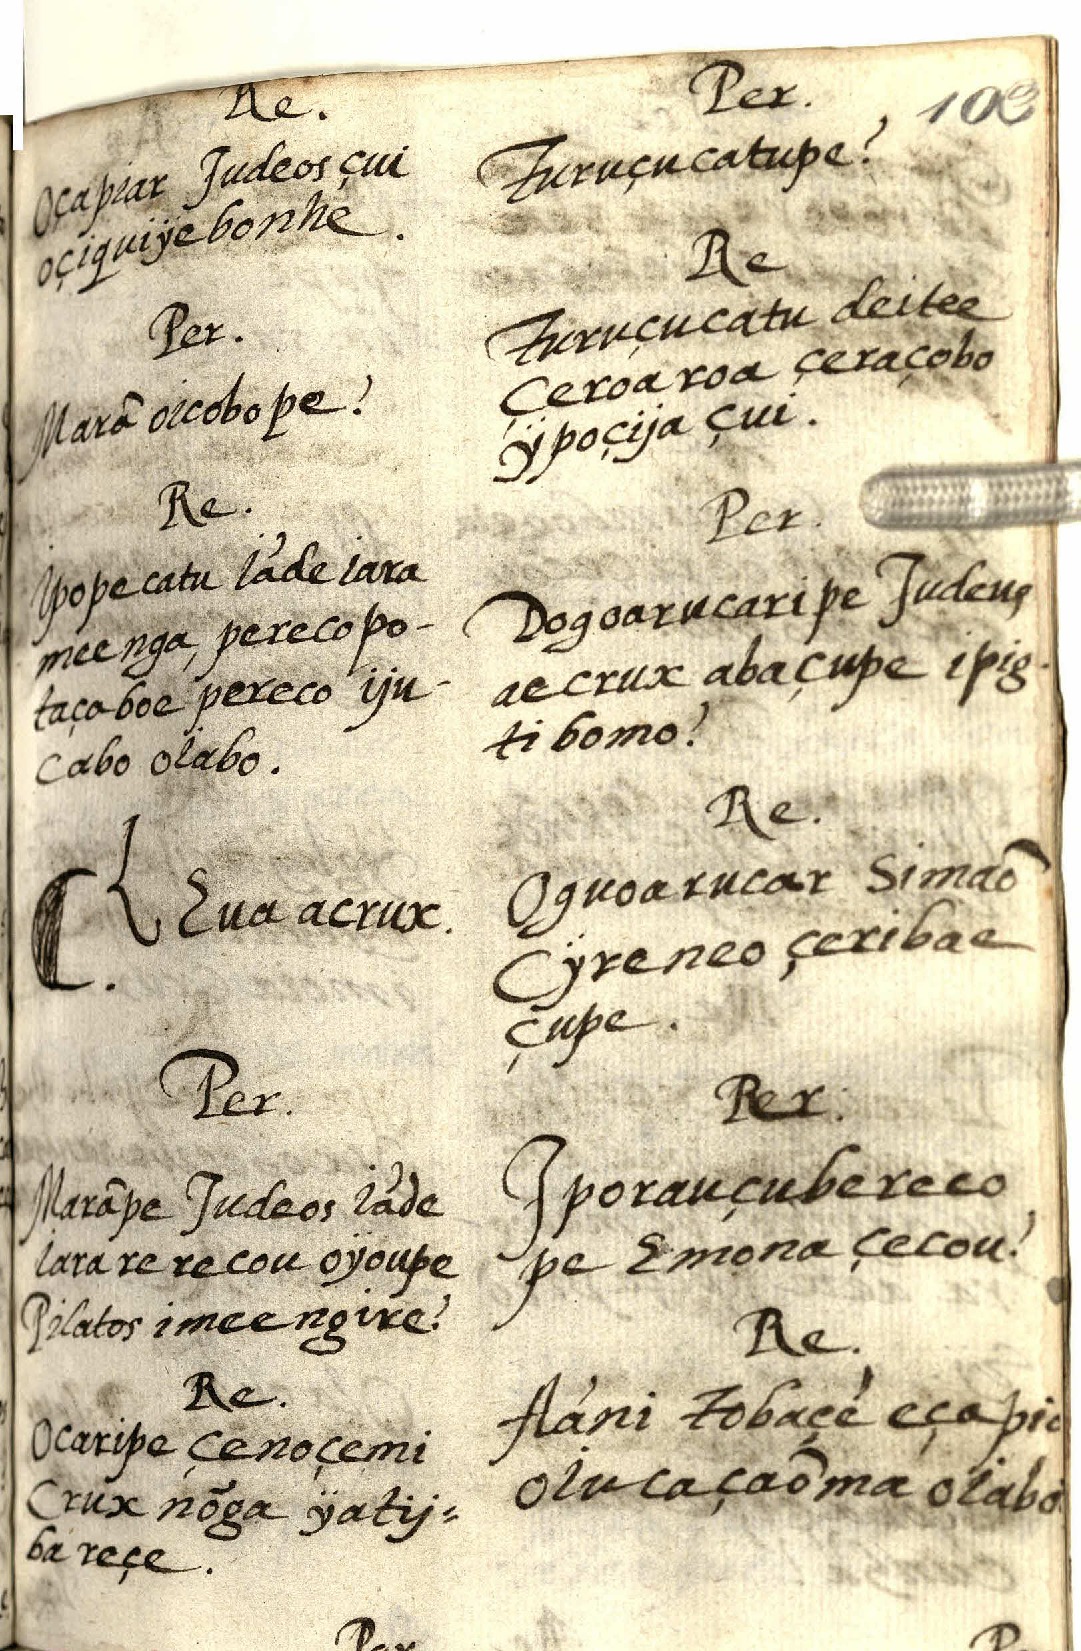 Re.
Oçapiar Judeos çui
oçiquiÿebonhe.
Per.
Marã oicobope?
Re.
Ipopecatu iãde iara
meenga, perecopo-
taçaboe pereco iju-
cabo olabo.
Eua acrux.
Per.
Marãpe Judeos iãde
iara rerecou oÿoupe
Pilatos imeengire?
Re.
Ocaripe çenoçemi
Crux nõga ÿatij=
bareçe.
Per.
Per.
Turuçucatupe?
Re
Turuçucatu deitee
Çeroaroa çeraçobo
ÿpoçija çui.
Per.
Dogoarucaripe Judeus
ae crux abaçupe ipig-
tibomo?
Re.
Oguoarucar Simaõ
Cÿreneo çeribae
çupe.
Per.
Iporauçubereco
pe Emona çecou?
Re.
Aáni tobaçé eçapic
oiucaçaõma olabo.